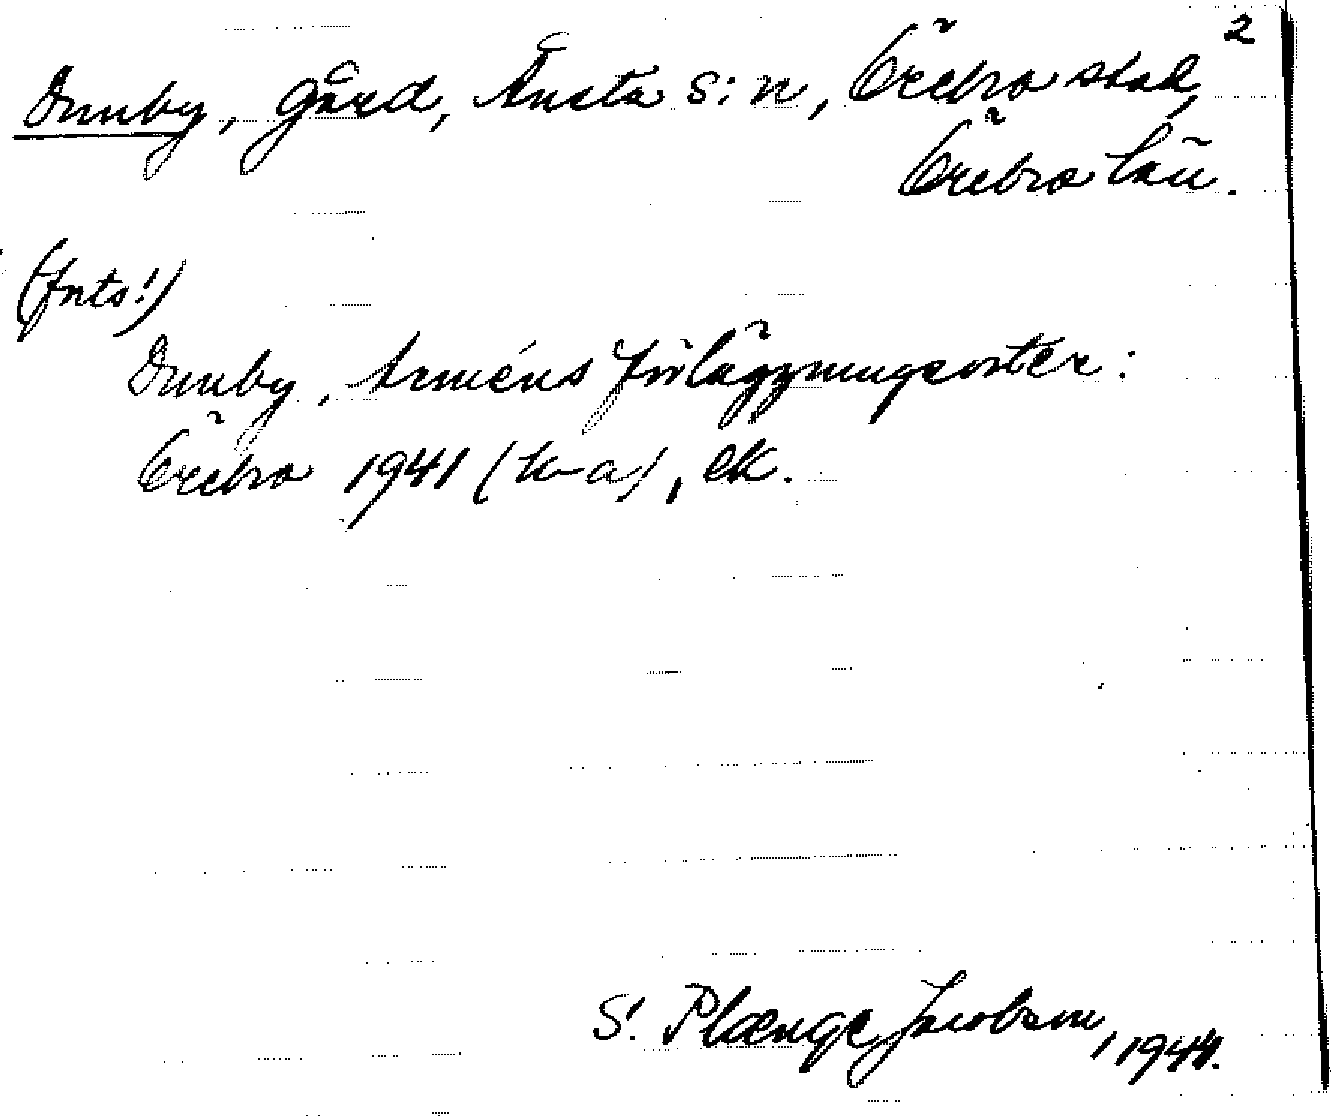 2
Dunby, gård, Ånsta s:n, Örebro stad,
Örebro län.
(fnts!)
Dunby, Arméns förläggningsorter:
Örebro 1941 (h-a), ek.
S. Plænge Jacobson, 1944.